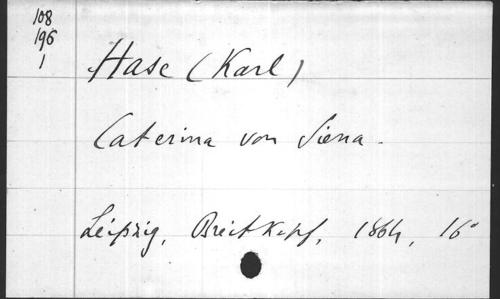 108
196
1
Hase (Karl)
Caterina von Siena.
Leipzig, Breitkopf, 1864, 16°